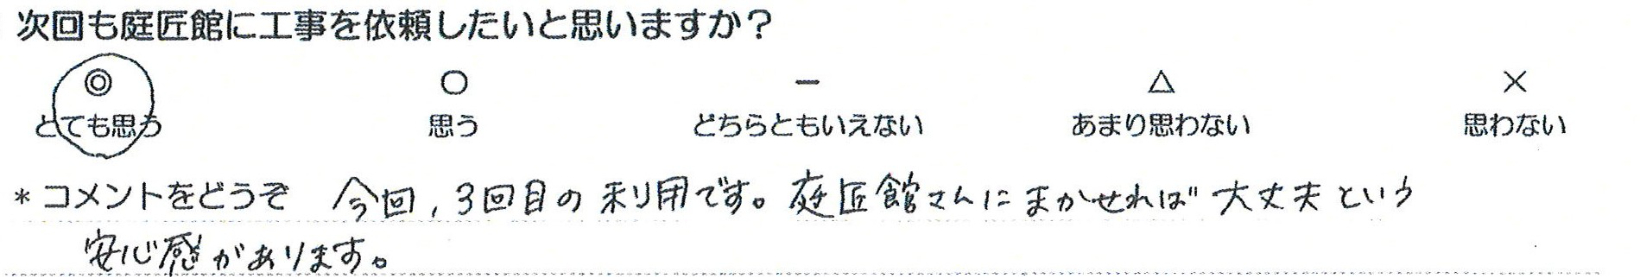 次回も庭匠館に工事を依頼したいと思いますか？
◎ ○ ー △ ×
とても思う 思う どちらともいえない あまり思わない 思わない
＊コメントをどうぞ 今回，3回目の利用です。庭匠館さんにまかせれば大丈夫という
安心感があります。